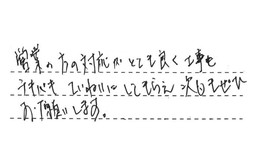 営業の方の対応がとても良く工事も
すばやくていねいにしてもらえ 次回もぜひ
お願いします。